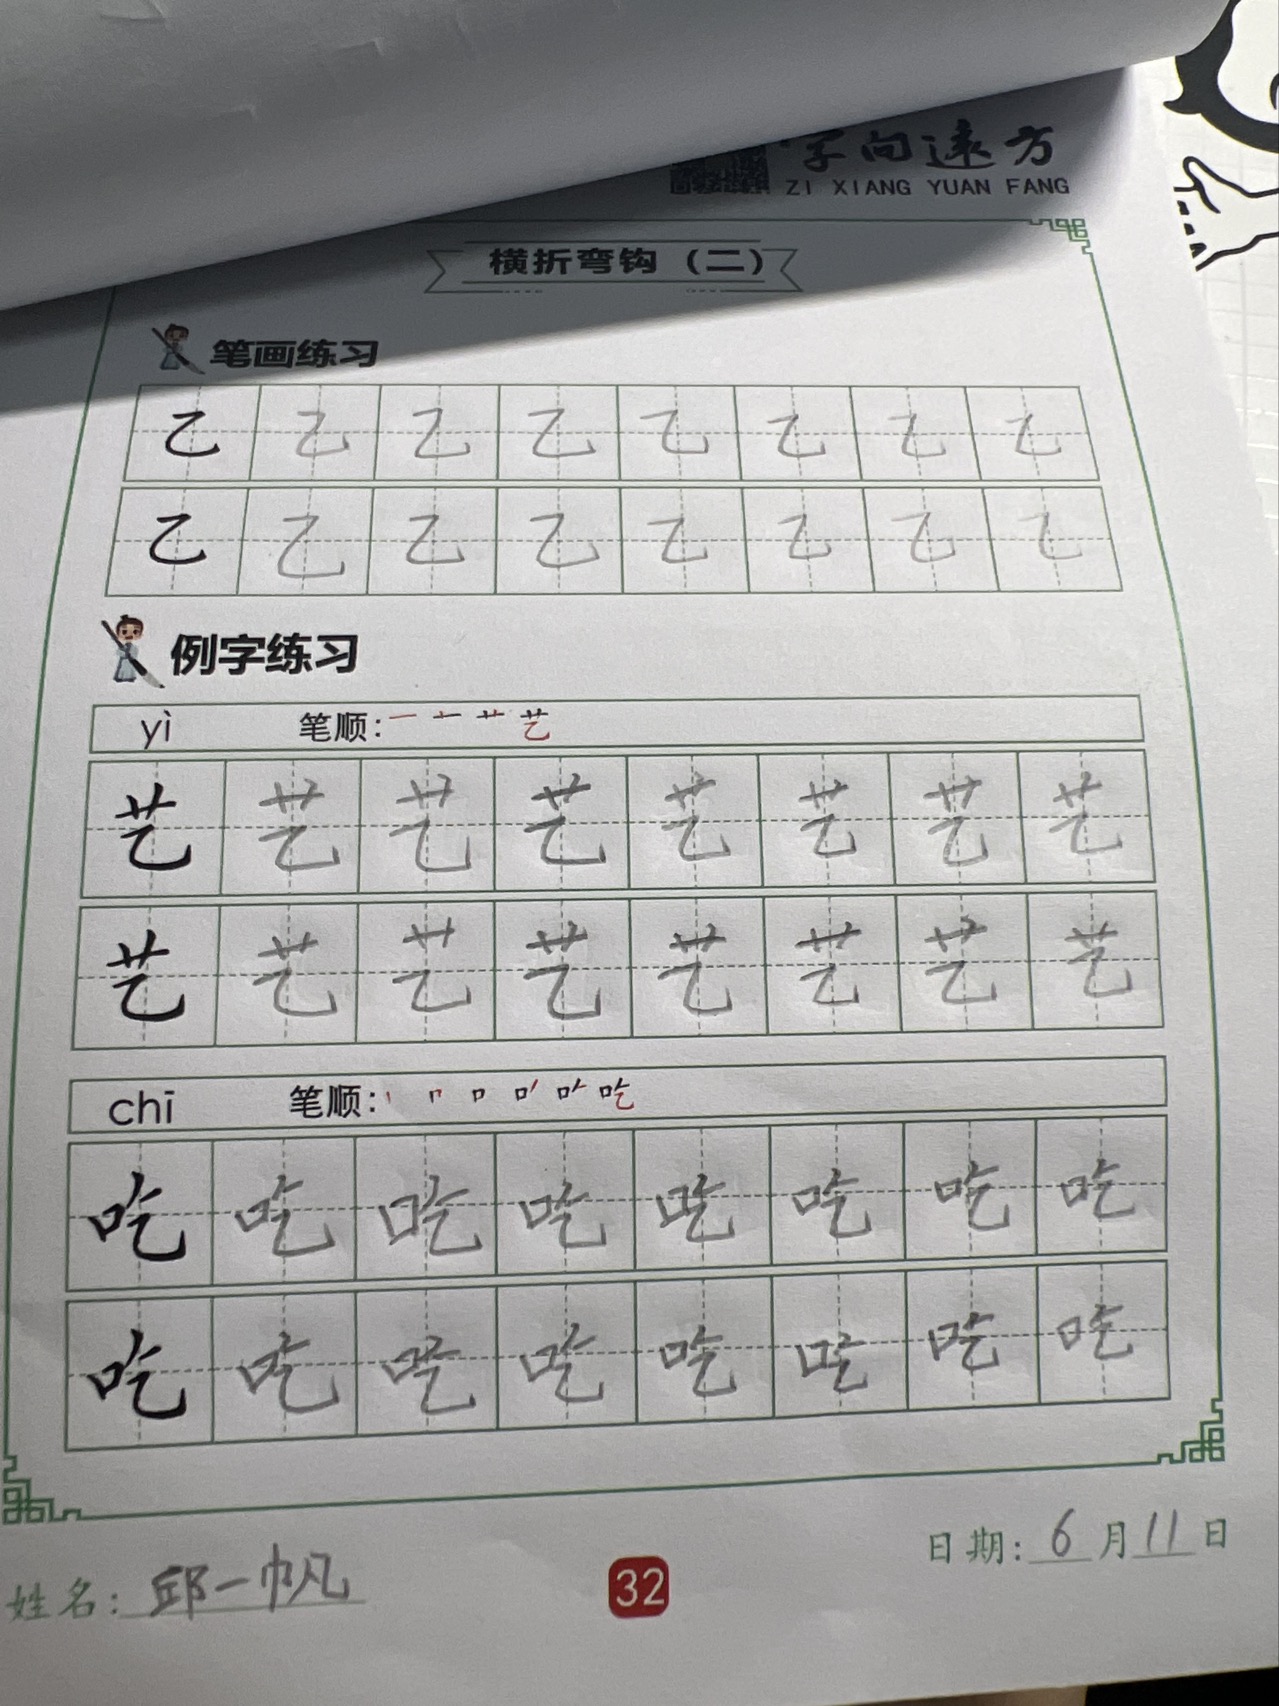 字向远方
ZI XIANG YUAN FANG
横折弯钩（二）
笔画练习
乙 乙 乙 乙 乙 乙 乙 乙
乙 乙 乙 乙 乙 乙 乙 乙
例字练习
yì 笔顺: 一 十 艹 艺
艺 艺 艺 艺 艺 艺 艺 艺
艺 艺 艺 艺 艺 艺 艺 艺
chī 笔顺: 丨 冂 口 吃
吃 吃 吃 吃 吃 吃 吃 吃
吃 吃 吃 吃 吃 吃 吃 吃
日期: 6 月 11 日
姓名: 邱一帆
32